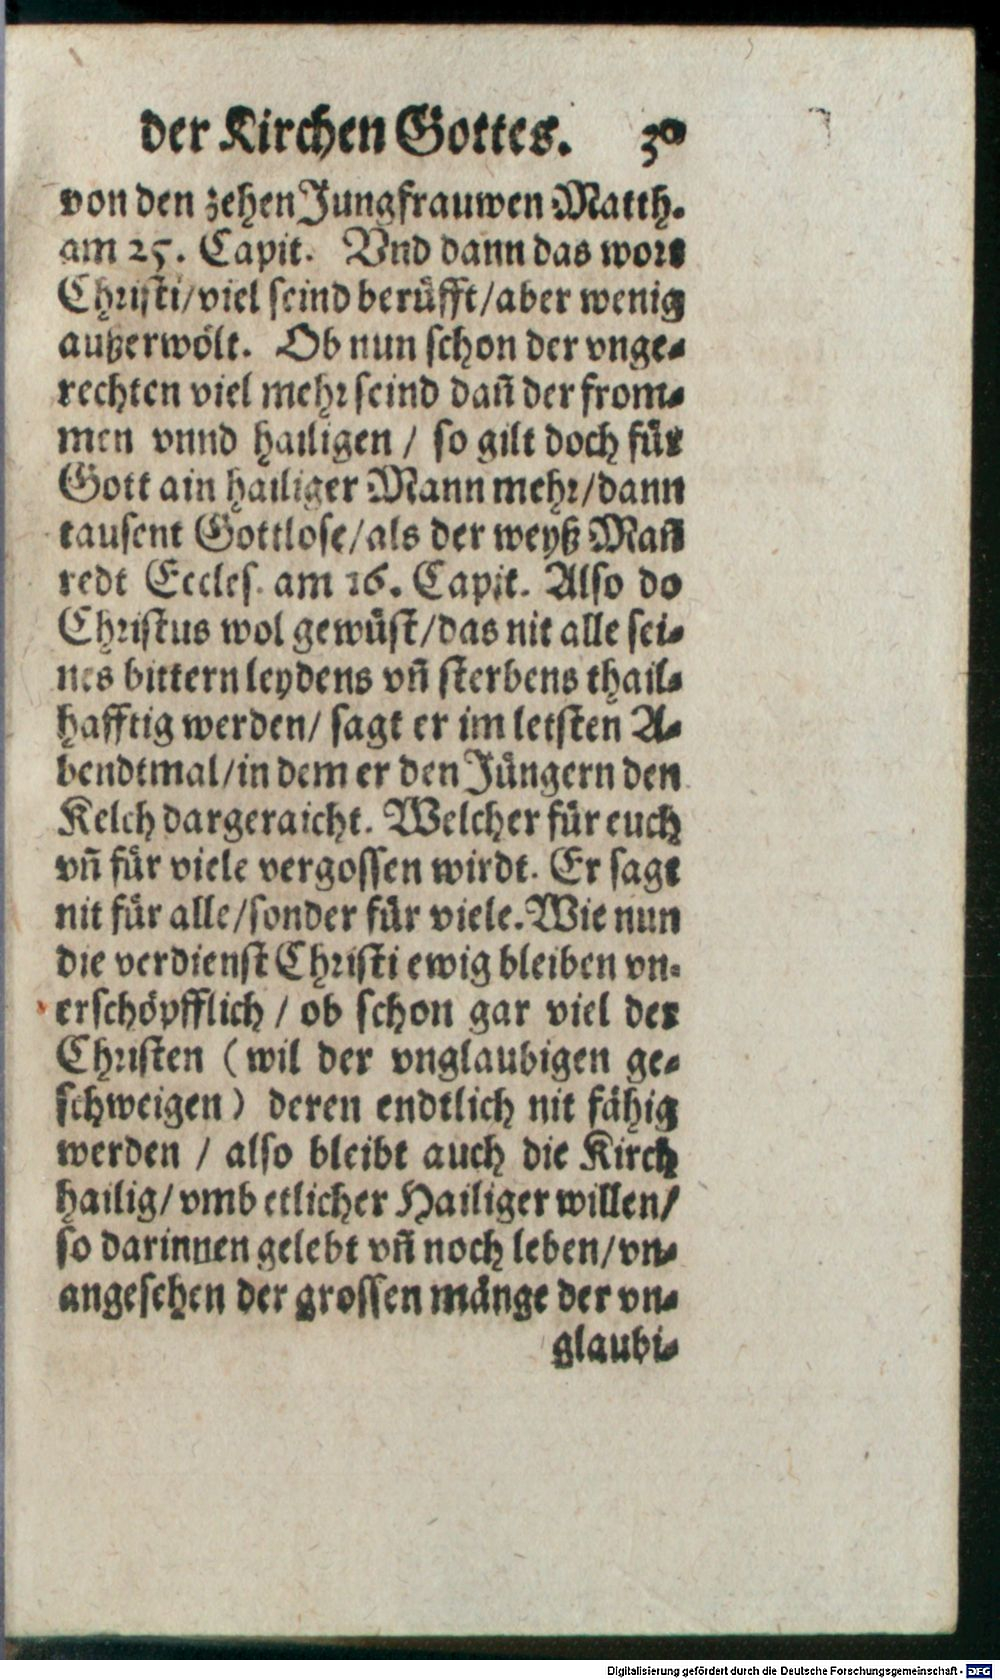 der Kirchen Gottes. 30
von den zehen Jungfrauwen Matth.
am 25. Capit. Vnd dann das wort
Christi/viel seind berüfft/aber wenig
außerwölt. Ob nun schon der vnge-
rechten viel mehr seind dañ der from-
men vnnd hailigen / so gilt doch für
Gott ain hailiger Mann mehr/dann
tausent Gottlose/als der weyß Mañ
redt Eccles. am 16. Capit. Also do
Christus wol gewüst/das nit alle sei-
nes bittern leydens vñ sterbens thail-
hafftig werden/ sagt er im letsten A-
bendtmal/in dem er den Jüngern den
Kelch dargeraicht. Welcher für euch
vñ für viele vergossen wirdt. Er sagt
nit für alle/sonder für viele. Wie nun
die verdienst Christi ewig bleiben vn-
erschöpfflich / ob schon gar viel der
Christen (wil der vnglaubigen ge-
schweigen) deren endtlich nit fähig
werden / also bleibt auch die Kirch
hailig/vmb etlicher Hailiger willen/
so darinnen gelebt vñ noch leben/vn-
angesehen der grossen mänge der vn-
glaubi-
Digitalisierung gefördert durch die Deutsche Forschungsgemeinschaft - DFG